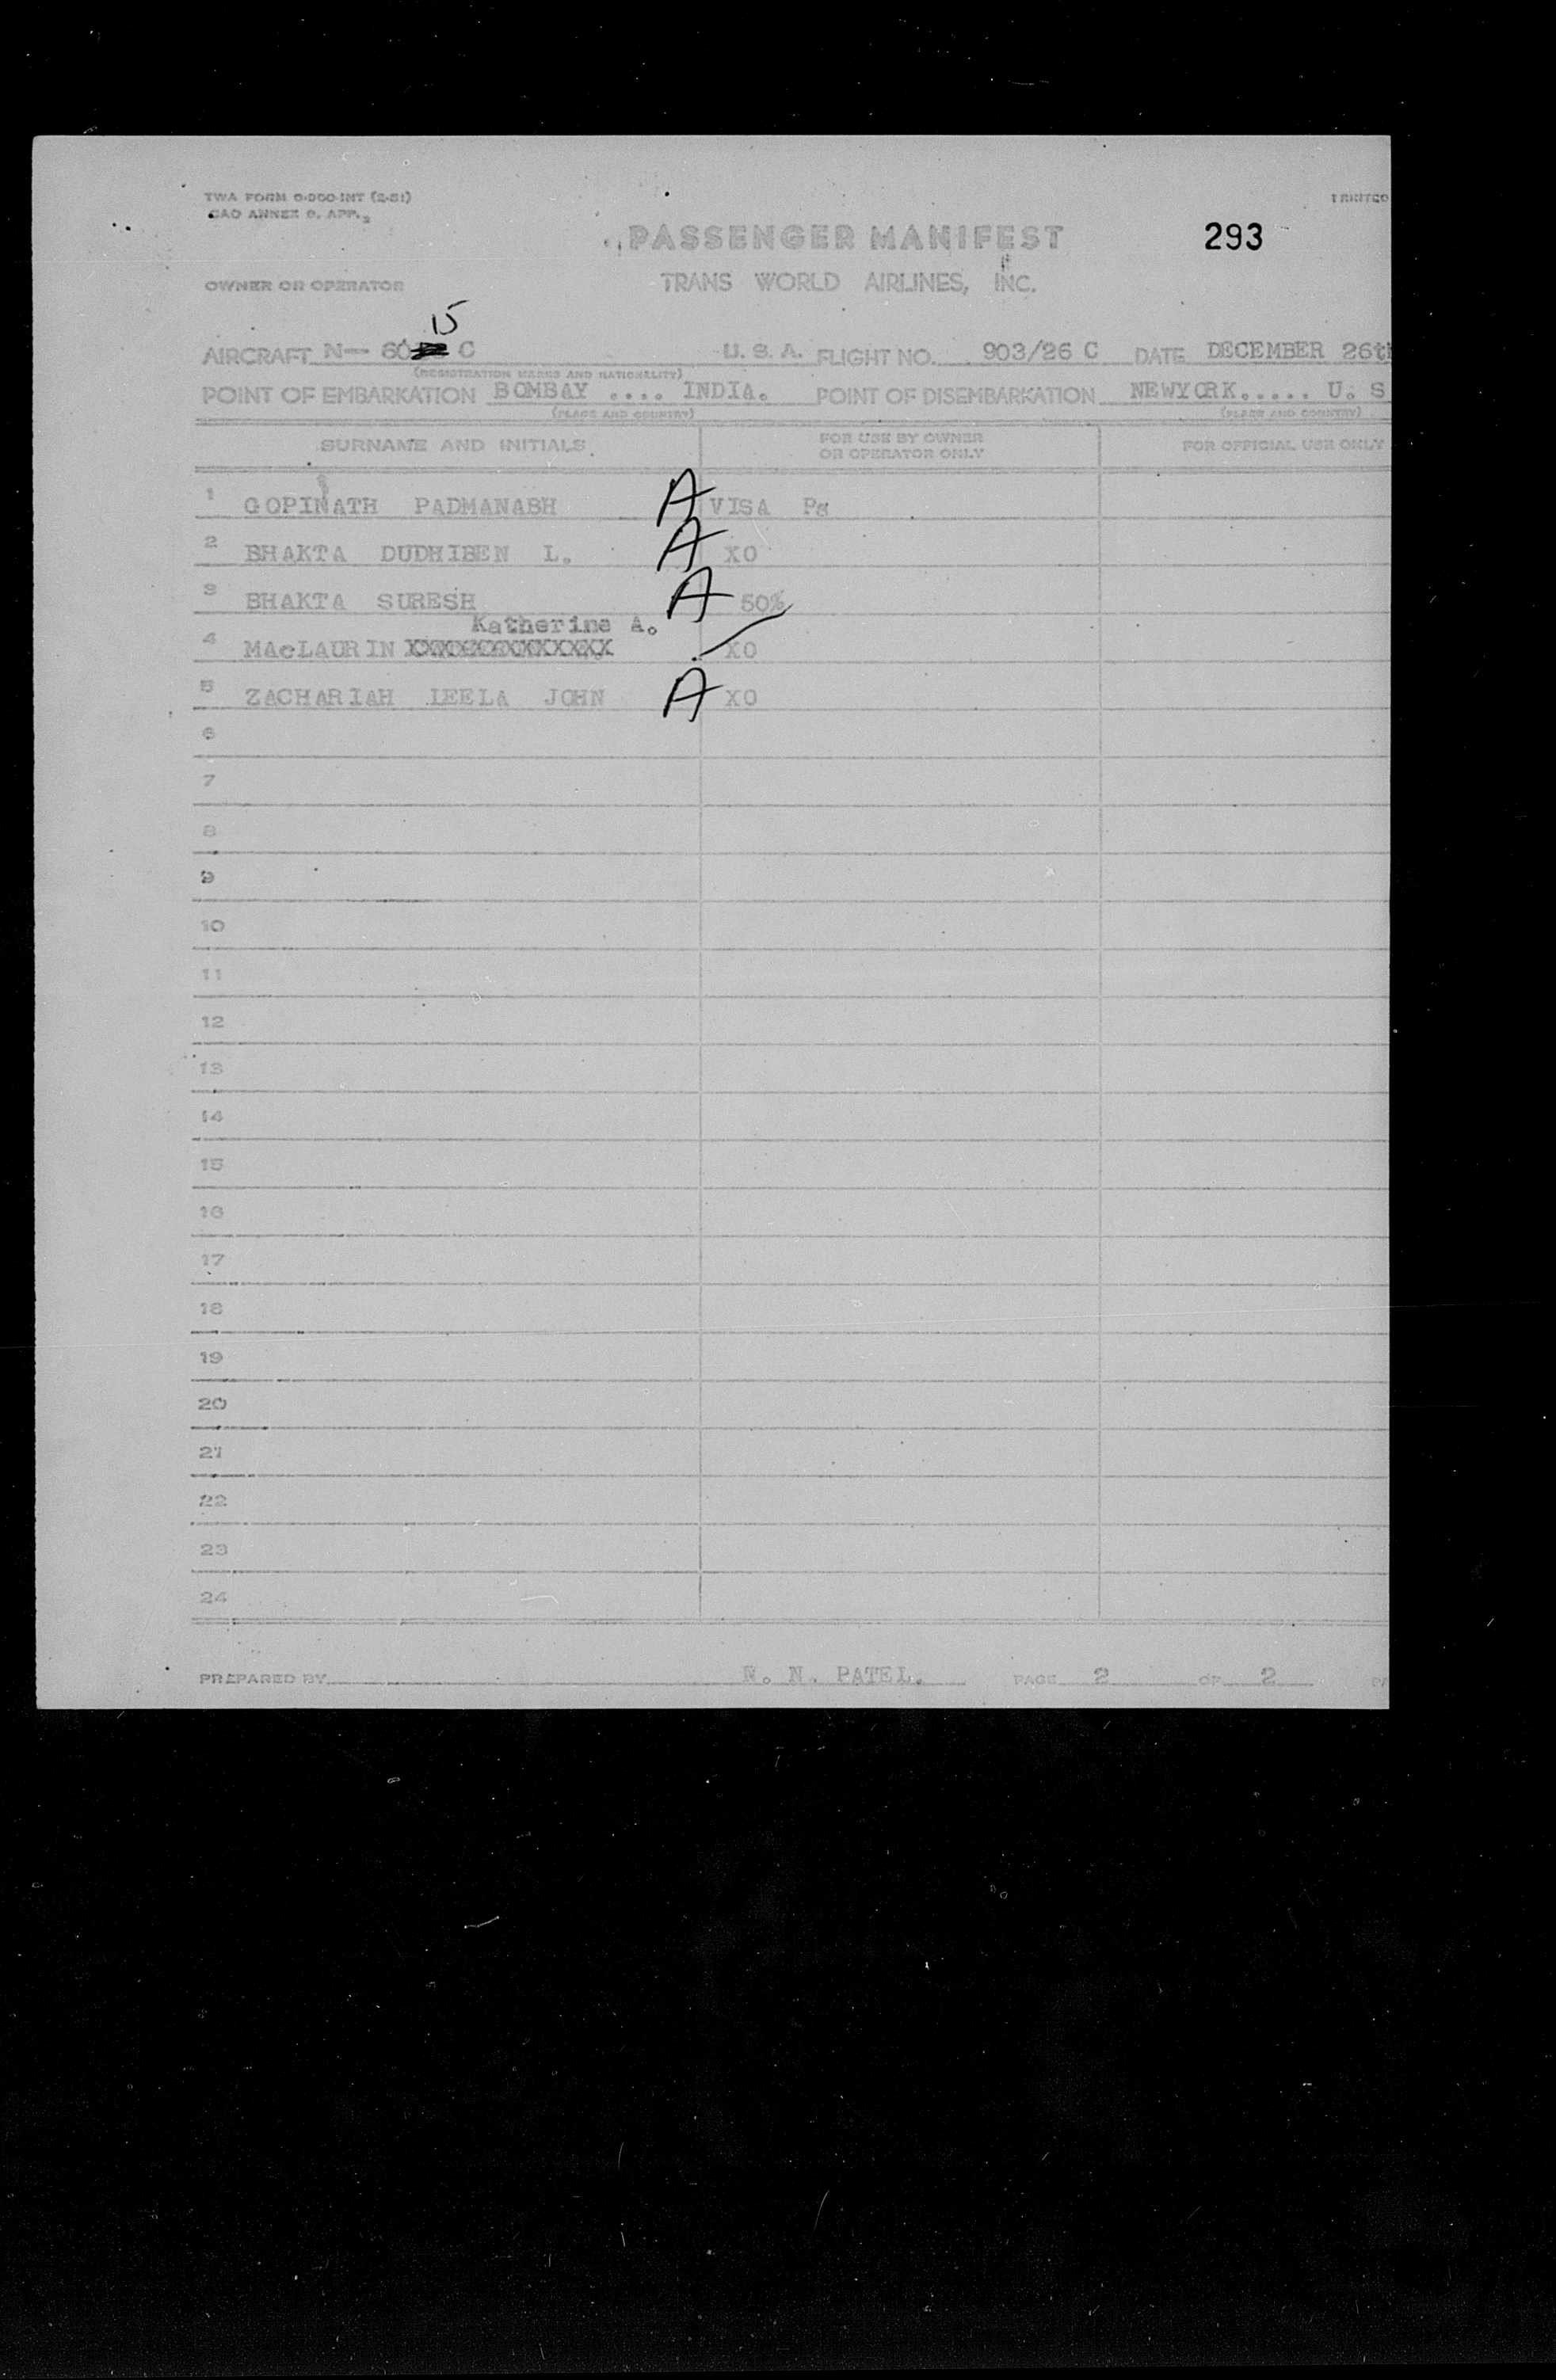 TWA FORM 0-000-INT (2-51)
CAO ANNEX 9. APP. 2
PASSENGER MANIFEST
293
OWNER OR OPERATOR
TRANS WORLD AIRLINES, INC.
15
AIRCRAFT N- 60 C U. S. A. FLIGHT NO. 903/26 C DATE DECEMBER 26th
(REGISTRATION MARKS AND NATIONALITY)
POINT OF EMBARKATION BOMBAY .... INDIA. POINT OF DISEMBARKATION NEWYORK..... U. S
(PLACE AND COUNTRY) (PLACE AND COUNTRY)
SURNAME AND INITIALS FOR USE BY OWNER OR OPERATOR ONLY FOR OFFICIAL USE ONLY
1 GOPINATH PADMANABH A VISA Ps
2 BHAKTA DUDHIBEN L. A XO
3 BHAKTA SURESH A 50%
Katherine A.
4 MAcLAURIN XXXXXXXXXXXXXX XO
5 ZACHARIAH LEELA JOHN A XO
6
7
8
9
10
11
12
13
14
15
16
17
18
19
20
21
22
23
24
PREPARED BY N. PATEL. PAGE 2 OF 2